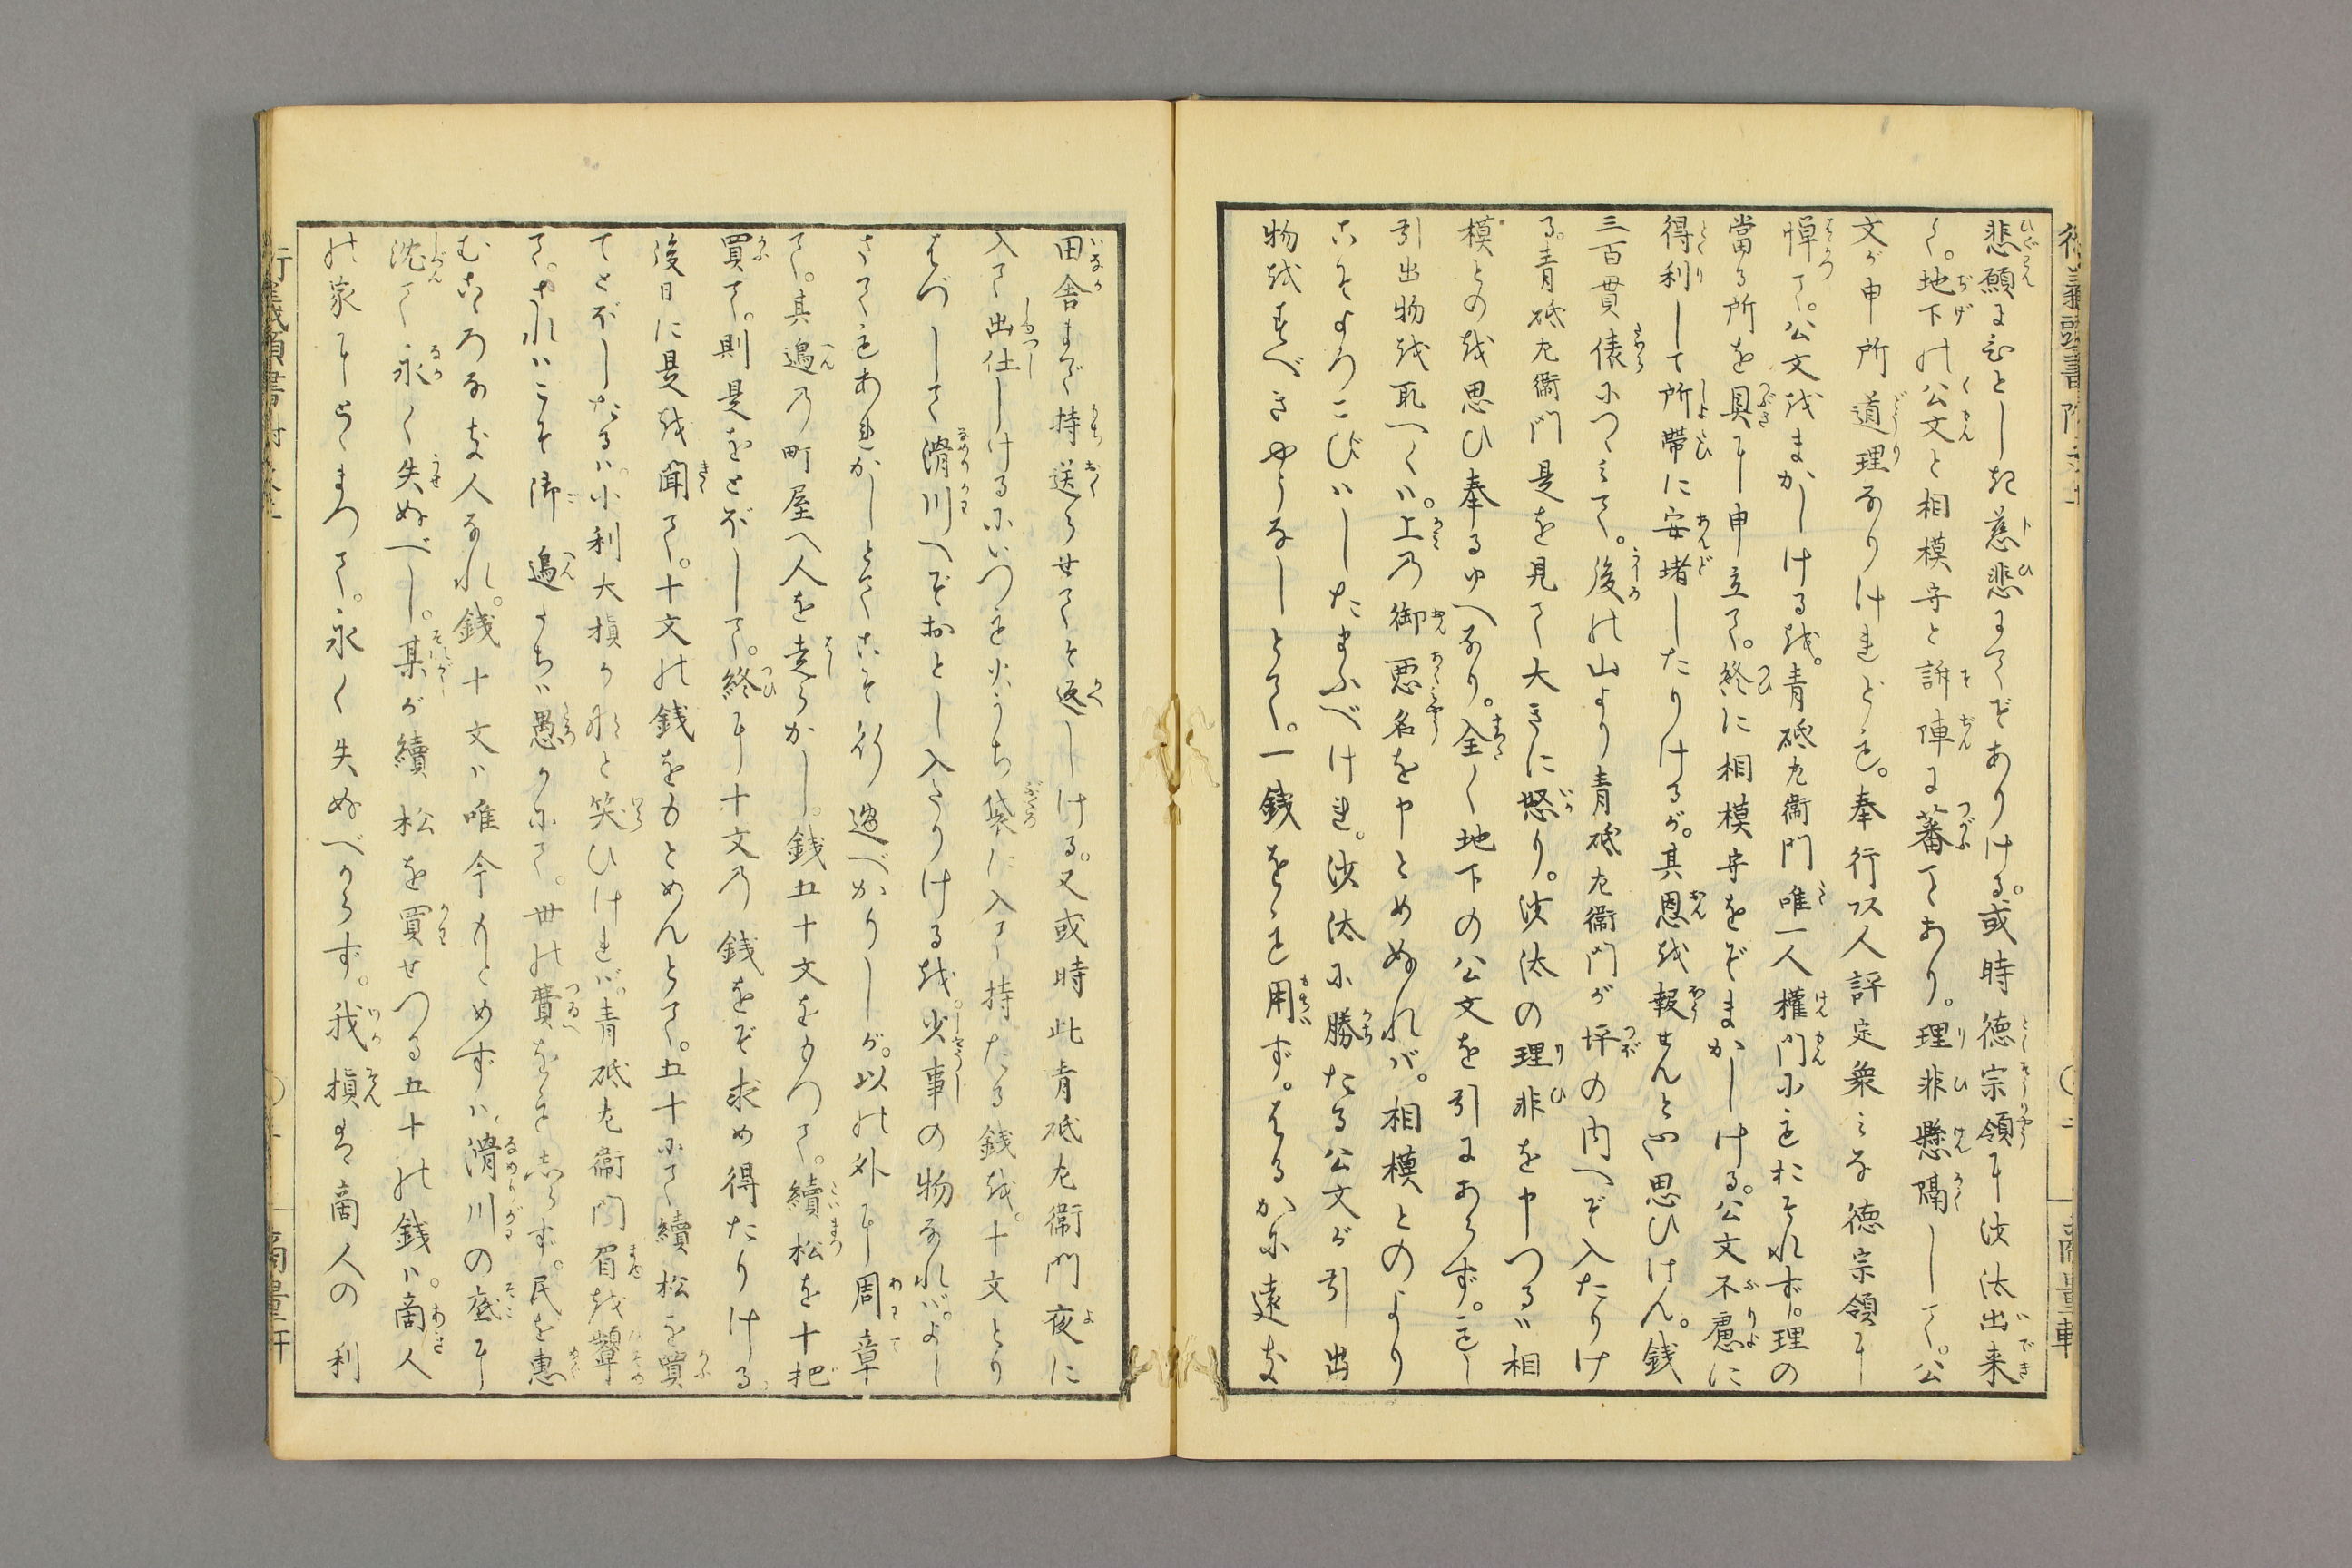 悲願を心とし起慈悲にてぞありける。或時徳宗領に沙汰出来
て。地下の公文と相模守と訴陣に蕃てあり。理非懸隔して。公
文が申所道理なりけれども。奉行头人評定衆みな徳宗領に
憚て。公文をまかしけるを。青砥左衞門唯一人權門にもおそれず。理の
當る所を具に申立て。終に相模守をぞまかしける。公文不慮に
得利して所帶に安堵したりけるが。其恩を報せんとや思ひけん。銭
三百貫俵につゝみて。後の山より青砥左衞門が坪の内へぞ入たりけ
る。青砥左衞門是を見て大きに怒り。沙汰の理非を申つるは相
模とのを思ひ奉るゆへなり。全く地下の公文を引にあらず。もし
引出物を取べくは。上乃御悪名を申とめぬれば。相模とのより
こそよろこびはしたまふべけれ。沙汰に勝たる公文が引出
物をすべきやうなしとて。一銭をも用ず。はるかに遠き
田舎まで持送らせてぞ返しける。又或時此青砥左衞門夜に
入て出仕しけるに。いつも火うち袋に入て持たる銭を。十文とり
はづして滑川へぞおとし入たりけるを。少事の物なれば。よし
さてもあれかしとてこそ行過べかりしが。以の外に周章
て。其邉乃町屋へ人を走らかし。銭五十文をもつて。續松を十把
買て。則是をとぼして。終に十文乃銭をぞ求め得たりける。
後日に是を聞て。十文の銭をもとめんとて。五十にて續松を買
てとぼしたるは。小利大損かなと笑ひければ。青砥左衞門眉を顰
て。されはこそ御邉たちは愚かにて。世の費をもしらず。民を惠
むこゝろなき人なれ。銭十文は唯今もとめずは。滑川の底に
沈て永く失ぬべし。某が續松を買せつる五十の銭は。商人
の家にとゞまつて。永く失ぬべからず。我損は商人の利